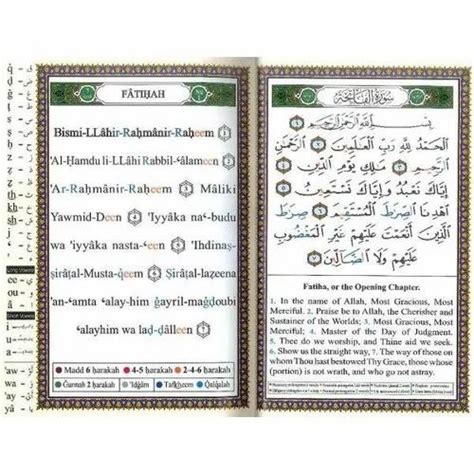 FÂTIḤAH
Bismi-LLâhir-Raḥmânir-Raḥeem
'Al-Ḥamdu li-LLâhi Rabbil-ʿâlameen
'Ar-Raḥmânir-Raḥeem Mâliki
Yawmid-Deen 'Iyyâka naʿ-budu
wa 'iyyâka nasta-ʿeen 'Ihdinaṣ-
Ṣirâṭal-Mustaqeem Ṣirâṭal-lazeena
'an-ʿamta ʿalay-him ġayril-maġdoubi
ʿalayhim wa laḍ-ḍâlleen
Madd 6 ḥarakah 4-5 ḥarakah 2-4-6 ḥarakah
Ġunnah 2 ḥarakah 'Idġâm Tafkheem Qalqalah
Long Vowels
ee
ou
â
Short Vowels
i
u
a
'aw
'ay
yâ
سُورَةُ الفَاتِحَة
بِسْمِ اللَّهِ الرَّحْمَٰنِ الرَّحِيمِ ١
الْحَمْدُ لِلَّهِ رَبِّ الْعَالَمِينَ ٢ الرَّحْمَٰنِ
الرَّحِيمِ ٣ مَالِكِ يَوْمِ الدِّينِ ٤
إِيَّاكَ نَعْبُدُ وَإِيَّاكَ نَسْتَعِينُ ٥
اهْدِنَا الصِّرَاطَ الْمُسْتَقِيمَ ٦ صِرَاطَ
الَّذِينَ أَنْعَمْتَ عَلَيْهِمْ غَيْرِ الْمَغْضُوبِ
عَلَيْهِمْ وَلَا الضَّالِّينَ ٧
Fatiha, or the Opening Chapter.
1. In the name of Allah, Most Gracious, Most
Merciful. 2. Praise be to Allah, the Cherisher and
Sustainer of the Worlds; 3. Most Gracious, Most
Merciful; 4. Master of the Day of Judgment.
5. Thee do we worship, and Thine aid we seek.
6. Show us the straight way, 7. The way of those on
whom Thou hast bestowed Thy Grace, those whose
(portion) is not wrath, and who go not astray.